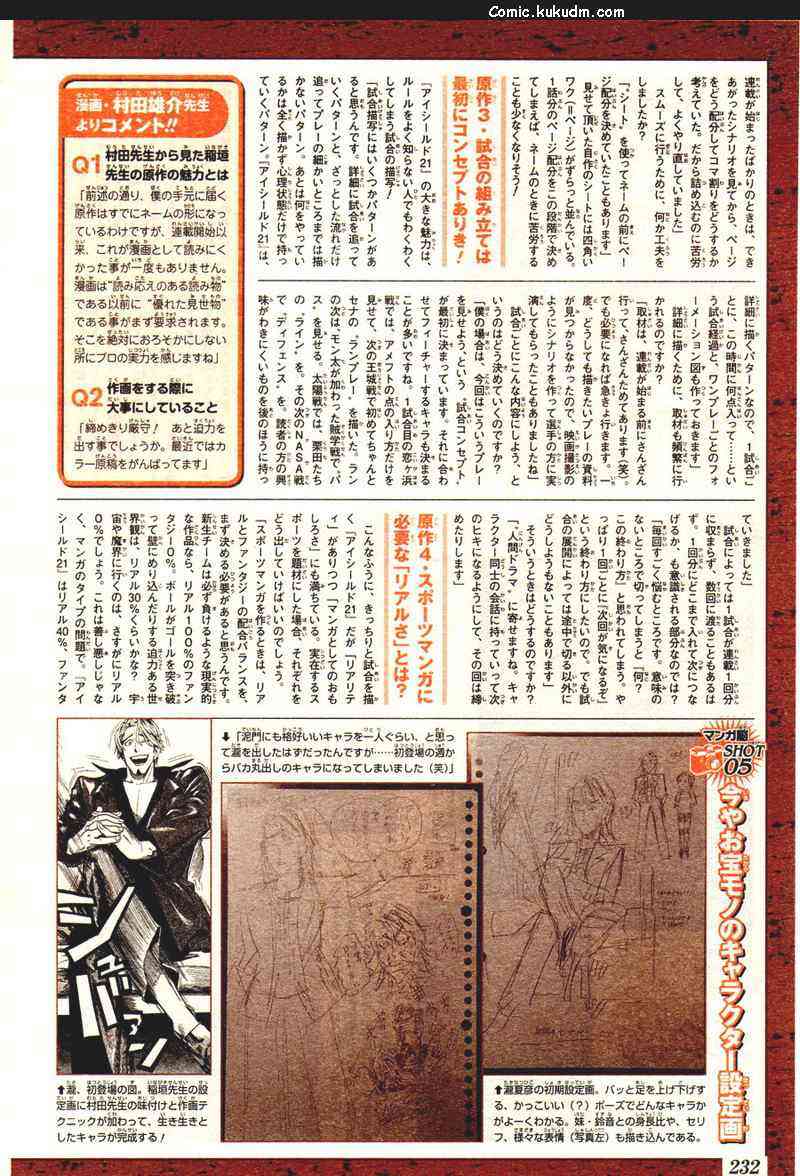 Comic.kukudm.com
連載が始まったばかりのときは、でき
あがったシナリオを見てから、ページ
をどう配分してコマ割りをどうするか
考えていた。だから詰め込むのに苦労
して、よくやり直していました」
スムーズに行うために、何か工夫を
しましたか？
「“シート”を使ってネームの前にペー
ジ配分を決めていたこともあります」
見せて頂いた自作のシートには四角い
ワク（＝ページ）がずらっと並んでいる。
1話分のページ配分をこの段階で決め
てしまえば、ネームのときに苦労する
ことも少なくなりそう！
原作3・試合の組み立ては
最初にコンセプトありき！
『アイシールド21』の大きな魅力は、
ルールをよく知らない人でもわくわく
してしまう試合の描写！
「試合描写にはいくつかパターンがあ
ると思うんです。詳細に試合を追って
いくパターンと、ざっとした流れだけ
追ってプレーの細かいところまでは描
かないパターン。あとは何をやってい
るかは全く描かず心理状態だけで持っ
ていくパターン。『アイシールド21』は、
詳細に描くパターンなので、1試合ご
とに、この時間に何点入って……とい
う試合経過と、ワンプレーごとのフォ
ーメーション図も作っておきます」
詳細に描くために、取材も頻繁に行
かれるのですか？
「取材は、連載が始まる前にさんざん
行って、さんざんためてあります（笑）。
でも必要になれば急きょ行きます。一
度、どうしても描きたいプレーの資料
が見つからなかったので、映画撮影の
ようにシナリオを作って選手の方に実
演してもらったこともありましたね」
試合ごとにこんな内容にしよう、と
いうのはどう決めていくのですか？
「僕の場合は、今回はこういうプレー
を見せよう、という“試合コンセプト”
が最初に決まっています。それに合わ
せてフィーチャーするキャラも決まる
ことが多いですね。1試合目の恋ヶ浜
戦では、アメフトの点の入り方だけを
見せて、次の王城戦で初めてちゃんと
セナの“ランプレー”を描いた。ラン
の次は、モン太が加わった賊学戦で“パ
ス”を見せる。太陽戦では、栗田たち
の“ライン”を。その次のNASA戦
で“ディフェンス”を。読者の方の興
味がわきにくいものを後のほうに持っ
ていきました」
試合によっては1試合が連載1回分
に収まらず、数回に渡ることもあるは
ず。1回分にどこまで入れて次につな
げるか、も意識される部分なのでは？
「毎回すごく悩むところです。意味の
ないところで切ってしまうと、「何？
この終わり方」と思われてしまう。や
っぱり1回ごとに「次回が気になるぞ」
という終わり方にしたいので。でも試
合の展開によっては途中で切る以外に
どうしようもないこともあります」
そういうときはどうするのですか？
「“人間ドラマ”に寄せますね。キャ
ラクター同士の会話に持っていって次
のヒキになるようにして、その回は締
めたりします」
原作4・スポーツマンガに
必要な「リアルさ」とは？
こんなふうに、きっちりと試合を描
く『アイシールド21』だが「リアリテ
ィ」がありつつ「マンガとしてのおも
しろさ」にも満ちている。実在するス
ポーツを題材にした場合、それぞれを
どう出していけばいいのでしょう。
「スポーツマンガを作るときは、リア
ルとファンタジーの配合バランスを、
まず決める必要があると思うんです。
新生チームは必ず負けるような現実的
な作品なら、リアル100％のファン
タジー0％。ボールがゴールを突き破
って壁にめり込んだりする迫力ある世
界観は、リアル30％くらいかな？　宇
宙や魔界に行くのは、さすがにリアル
0％でしょう。これは善し悪しじゃな
く、マンガのタイプの問題で。『アイ
シールド21』はリアル40％、ファンタ
漫画・村田雄介先生
よりコメント!!
Q1 村田先生から見た稲垣
先生の原作の魅力とは
「前述の通り、僕の手元に届く
原作はすでにネームの形になっ
ているわけですが、連載開始以
来、これが漫画として読みにく
かった事が一度もありません。
漫画は“読み応えのある読み物”
である以前に“優れた見世物”
である事がまず要求されます。
そこを絶対におろそかにしない
所にプロの実力を感じますね」
Q2 作画をする際に
大事にしていること
「締めきり厳守！　あと迫力を
出す事でしょうか。最近ではカ
ラー原稿をがんばってます」
マンガ脳
SHOT
05
今やお宝モノのキャラクター設定画
⬇「泥門にも格好いいキャラを一人ぐらい、と思っ
て瀧を出したはずだったんですが……初登場の週か
らバカ丸出しのキャラになってしまいました（笑）」
⬆瀧、初登場の図。稲垣先生の設
定画に村田先生の味付けと作画テ
クニックが加わって、生き生きと
したキャラが完成する！
⬆瀧夏彦の初期設定画。バッと足を上げ下げす
る、かっこいい（？）ポーズでどんなキャラか
がよーくわかる。妹・鈴音との身長比や、セリ
フ、様々な表情（写真左）も描き込んである。
232